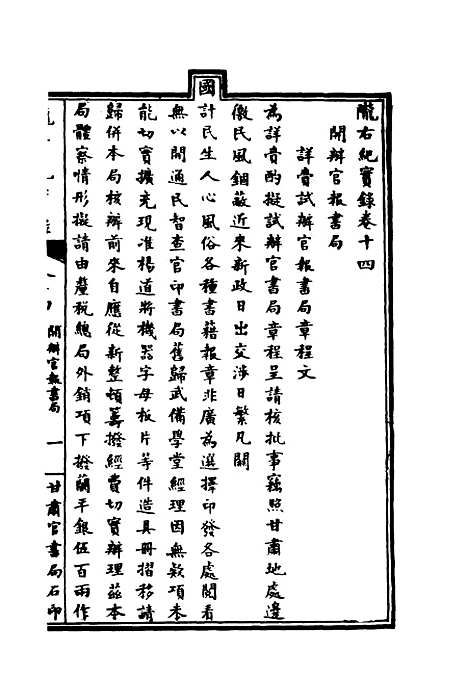 隴右紀實錄卷十四
開辦官報書局
詳賫試辦官報書局章程文
為詳賫酌擬試辦官書局章程呈請核批事竊照甘肅地處邊
徼民風錮蔽近來新政日出交涉日繁凡關
國
計民生人心風俗各種書籍報章非廣為選擇印發各處閱看
無以開通民智查官印書局舊歸武備學堂經理因無欵項未
能切實擴充現准楊道將機器字母板片等件造具冊摺移請
歸併本局核辦前來自應從新整頓籌撥經費切實辦理茲本
局體察情形擬請由釐稅總局外銷項下撥蘭平銀伍百兩作
開辦官報書局
一
甘肅官書局石印